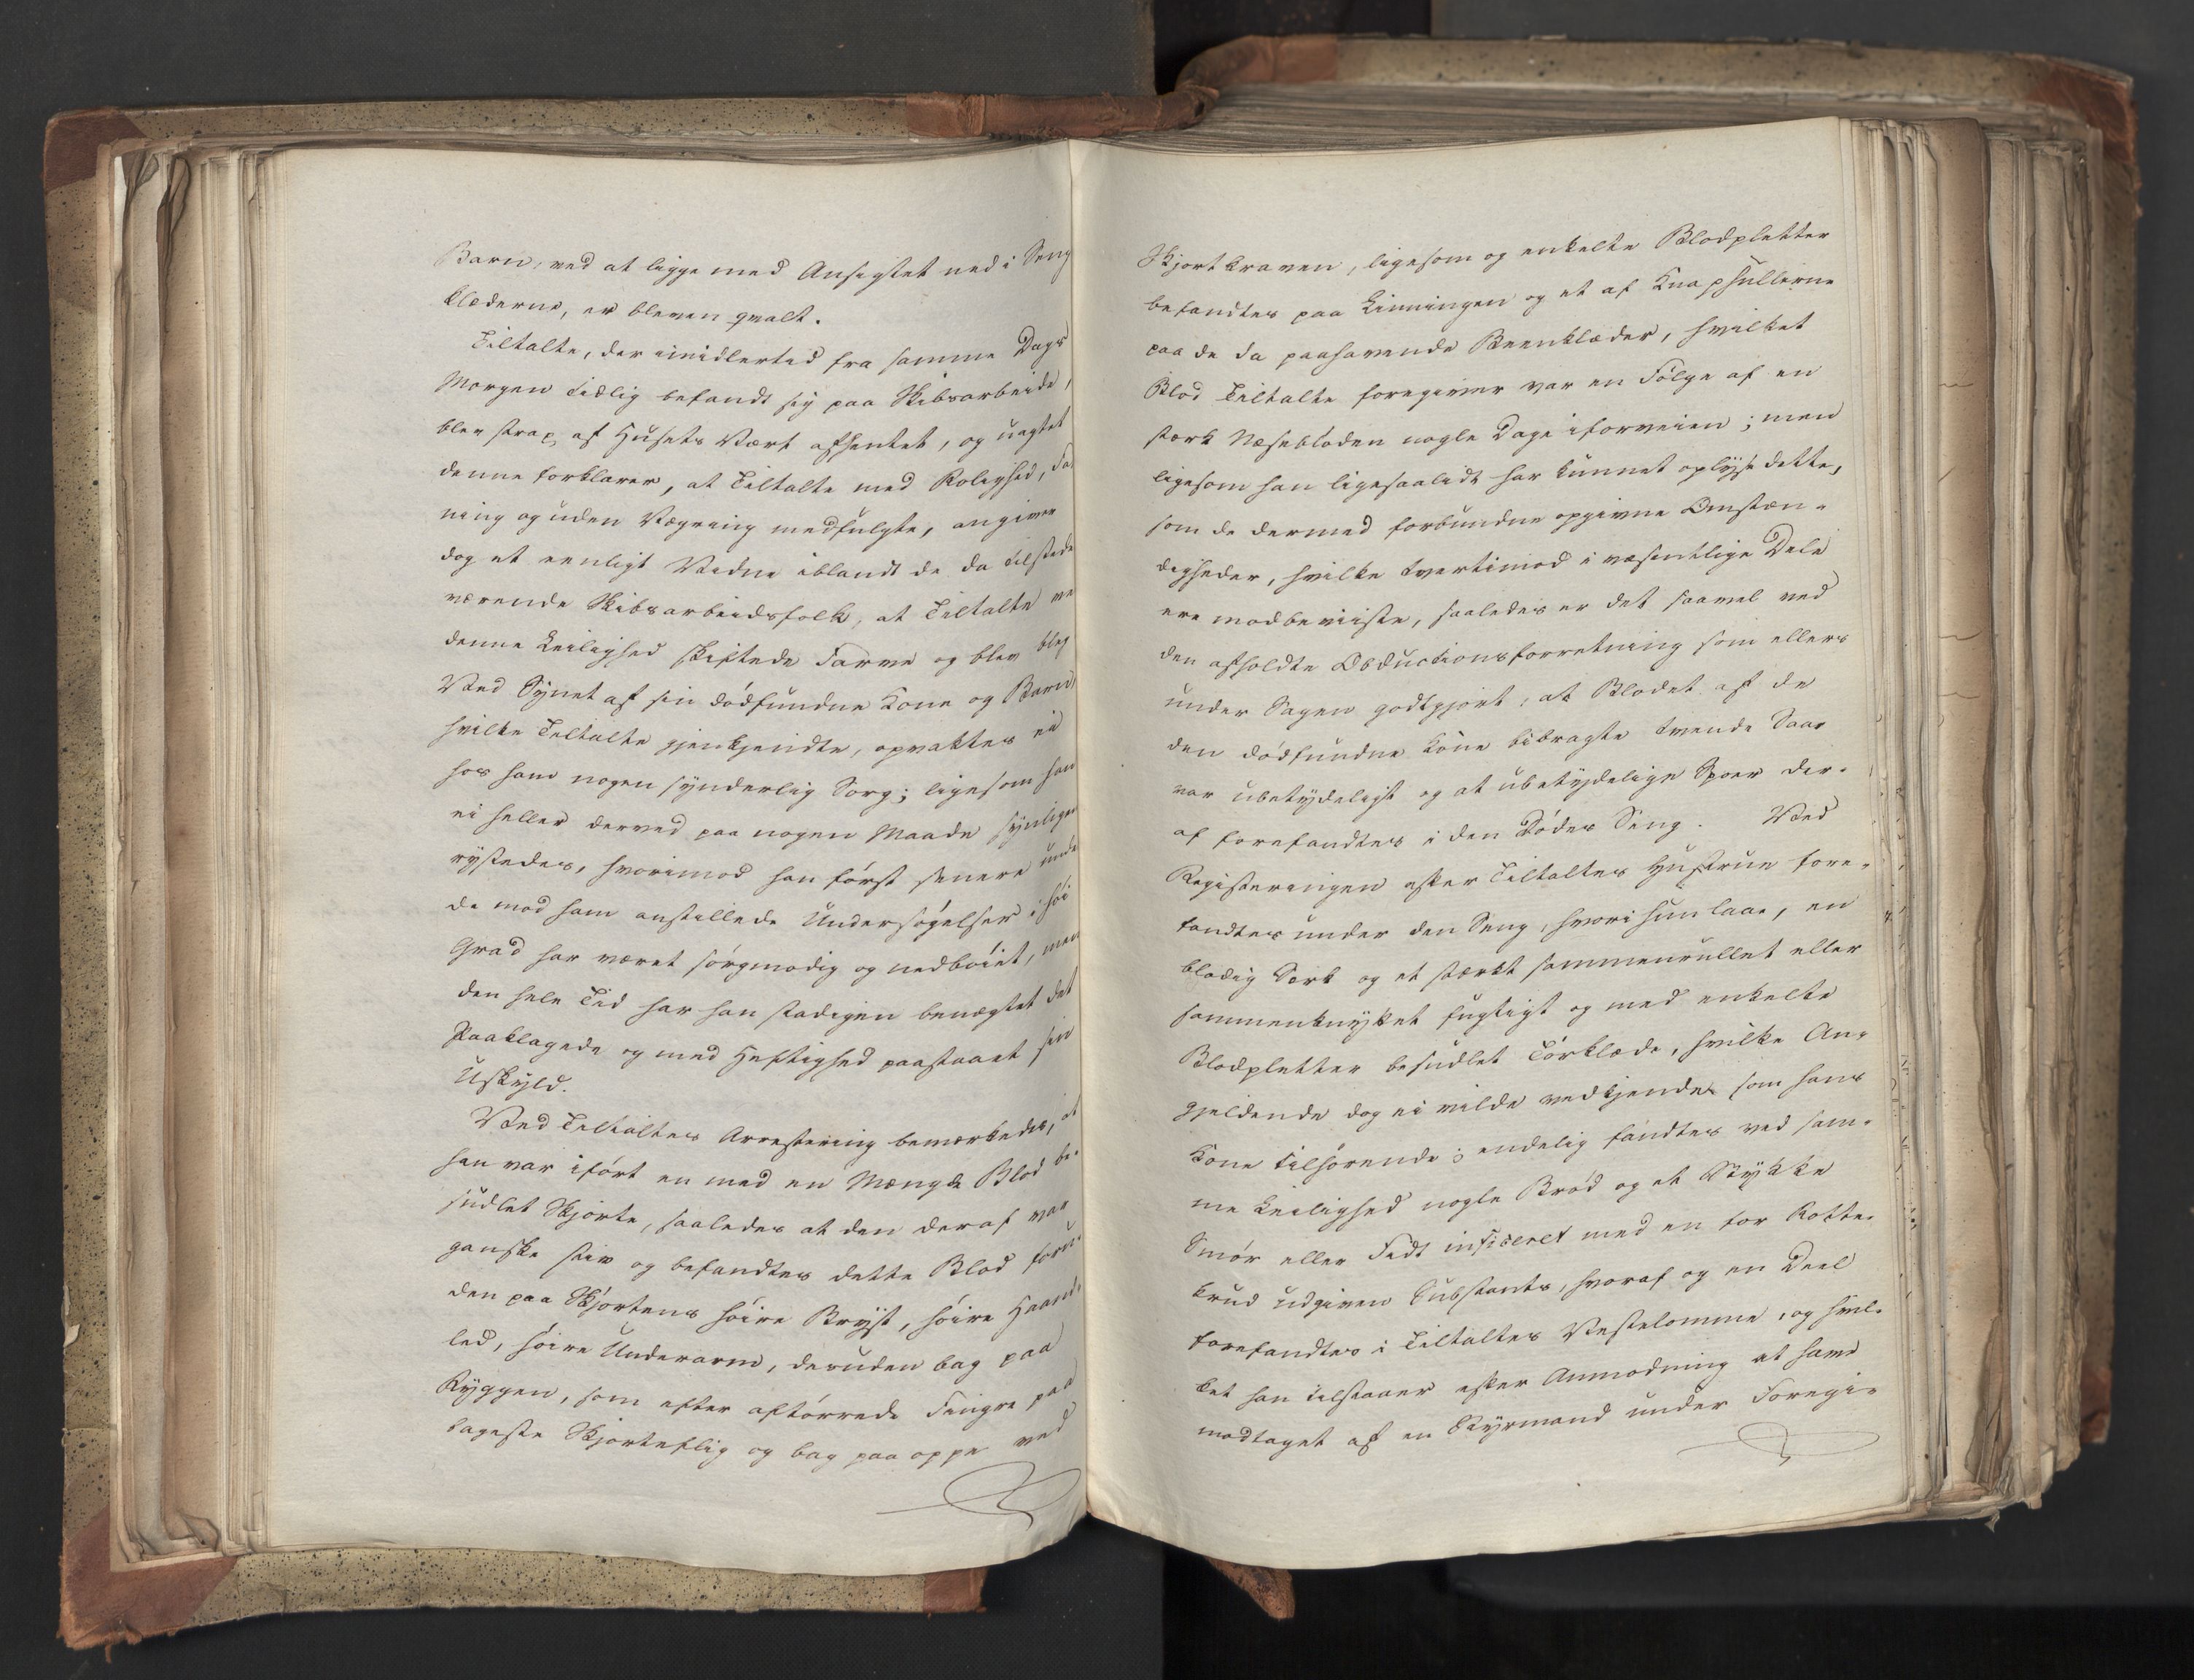 Barn, ved at ligge med Ansigtet ned i Seng
klæderne, er bleven qvalt.
Tiltalte, der imidlertid fra samme Dags
Morgen tidlig befandt sig paa Skibsarbeide,
blev strax af Husets Vært afhentet, og uagtet
denne forklarer, at Tiltalte med Rolighed, Fat
ning og uden Vægring medfulgte, angiver
dog et eenligt Vidne iblandt de da tilstede
værende Skibsarbeidsfolk, at Tiltalte ve
denne Leilighed skiftede Farve og blev bleg
Ved Synet af sin dödfundne Kone og Barn,
hvilke Tiltalte gjenkjendte, opvaktes ei
hos ham nogen synderlig Sorg; ligesom han
ei heller derved paa nogen Maade synligen
rystedes, hvorimod han först senere unde
de mod ham anstillede Undersögelser i höi
Grad har været sörgmodig og nedböiet, men
den hele Tid har han stadigen benægtet det
Paaklagede og med Heftighed paastaaet sin
Uskyld.
Ved Tiltaltes Arrestering bemærkedes, at
han var ifört en med en Mængde Blod be-
sudlet Skjorte, saaledes at den deraf var
ganske stiv og befandtes dette Blod forn
den paa Skjortens höire Bryst, höire Haand-
led, höire Underarm, desuden bag paa
Ryggen, som efter aftörrede Fingre paa
bageste Skjorteflig og bag paa oppe ved
Skjortkraven, ligesom og enkelte Blodpletter
befandtes paa Linningen og et af Knaphullerne
paa de da paahavende Beenklæder, hvilket
Blod Tiltalte foregiver var en Fölge af en
stærk Næseblöden nogle Dage iforveien; men
ligesom han ligesaalidt har kunnet oplyse dette,
som de dermed forbundne opgivne Omstæn-
digheder, hvilke tvertimod i væsentlige Dele
ere modbeviiste, saaledes er det saavel ved
den afholdte Obductionsforretning som ellers
under Sagen godtgjort, at Blodet af de
den dödfundne Kone bibragte tvende Saar
var ubetydeligt og at ubetydelige Spoer der-
af forefandtes i den Dödes Seng. Ved
Registeringen efter Tiltaltes Hustrue fore-
fandtes under den Seng, hvori hun laae, en
blodig Særk og et stærkt sammenrullet eller
sammenknyttet fugtigt og med enkelte
Blodpletter besudlet Törklæde, hvilke An-
gjeldende dog ei vilde vedkjendes som hans
Kone tilhörende; endelig fandtes ved sam-
me Leilighed nogle Bröd og et Stykke
Smör eller Fedt inficeret med en for Rotte-
krud udgiven Substants, hvoraf og en Deel
forefandtes i Tiltaltes Vestelomme, og hvil-
ket han tilstaaer efter Anmodning at have
modtaget af en Styrmand under Foregi-